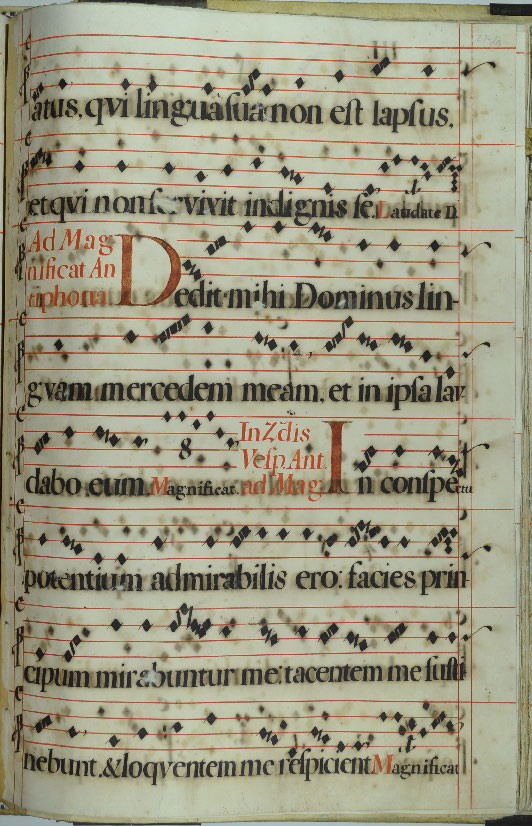 atus, qvi linguâ sua non est lapsus,
et qvi non servivit indignis se. Laudate D.
Ad Mag
nificat An
tiphona
Dedit mihi Dominus lin-
gvam mercedem meam, et in ipsa lav
8
dabo eum. Magnificat.
In Zdis
Vesp. Ant.
ad Mag.
In conspectu
potentium admirabilis ero: facies prin-
cipum mirabuntur me: tacentem me susti
nebunt. & loqventem me respicient Magnificat